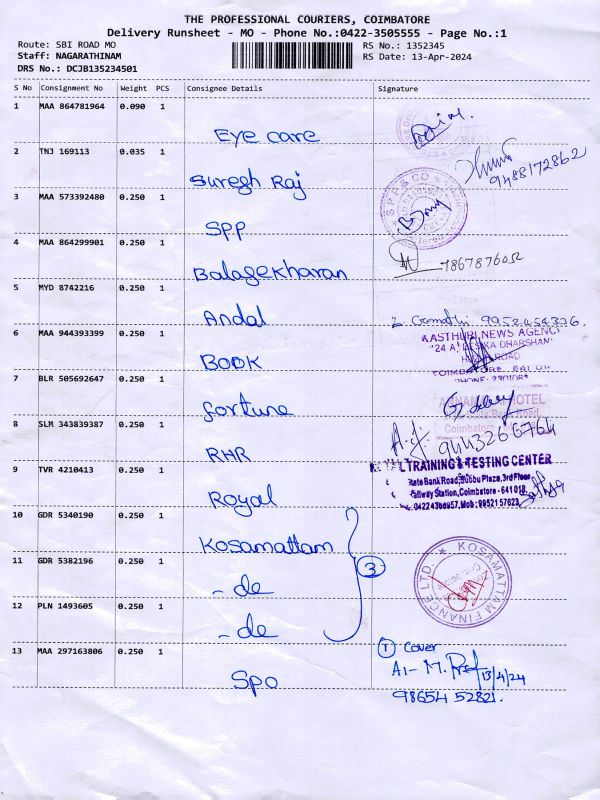 THE PROFESSIONAL COURIERS, COIMBATORE
Delivery Runsheet - MO - Phone No.:0422-3505555 - Page No.:1
Route: SBI ROAD MO
RS No.: 1352345
Staff: NAGARATHINAM
RS Date: 13-Apr-2024
DRS No.: DCJB135234501
S No Consignment No Weight PCS Consignee Details Signature
1 MAA 864781964 0.090 1
Eye care
2 TNJ 169113 0.035 1
Suregh Raj
9488172862
3 MAA 573392480 0.250 1
SPP
SPP & CO
4 MAA 864299901 0.250 1
Balagekharan
7867876052
5 MYD 8742216 0.250 1
Andal
9952454336
6 MAA 944393399 0.250 1
BOOK
KASTHURI NEWS AGENCY
ROAD
7 BLR 505692647 0.250 1
fortune
HOTEL
Bank Road
Coimbatore
8 SLM 343839387 0.250 1
RHR
9443266764
9 TVR 4210413 0.250 1
Royal
TRAINING & TESTING CENTER
State Bank Road, Subbu Plaza, 3rd Floor
Railway Station, Coimbatore - 641 018
Mob: 9952157623
10 GDR 5340190 0.250 1
Kosamattam
11 GDR 5382196 0.250 1
- de
3
KOSAMATTAM FINANCE LTD.
12 PLN 1493605 0.250 1
- de
13 MAA 297163806 0.250 1
Spo
1 Cover
A1- M.
13/4/24
98654 52821.